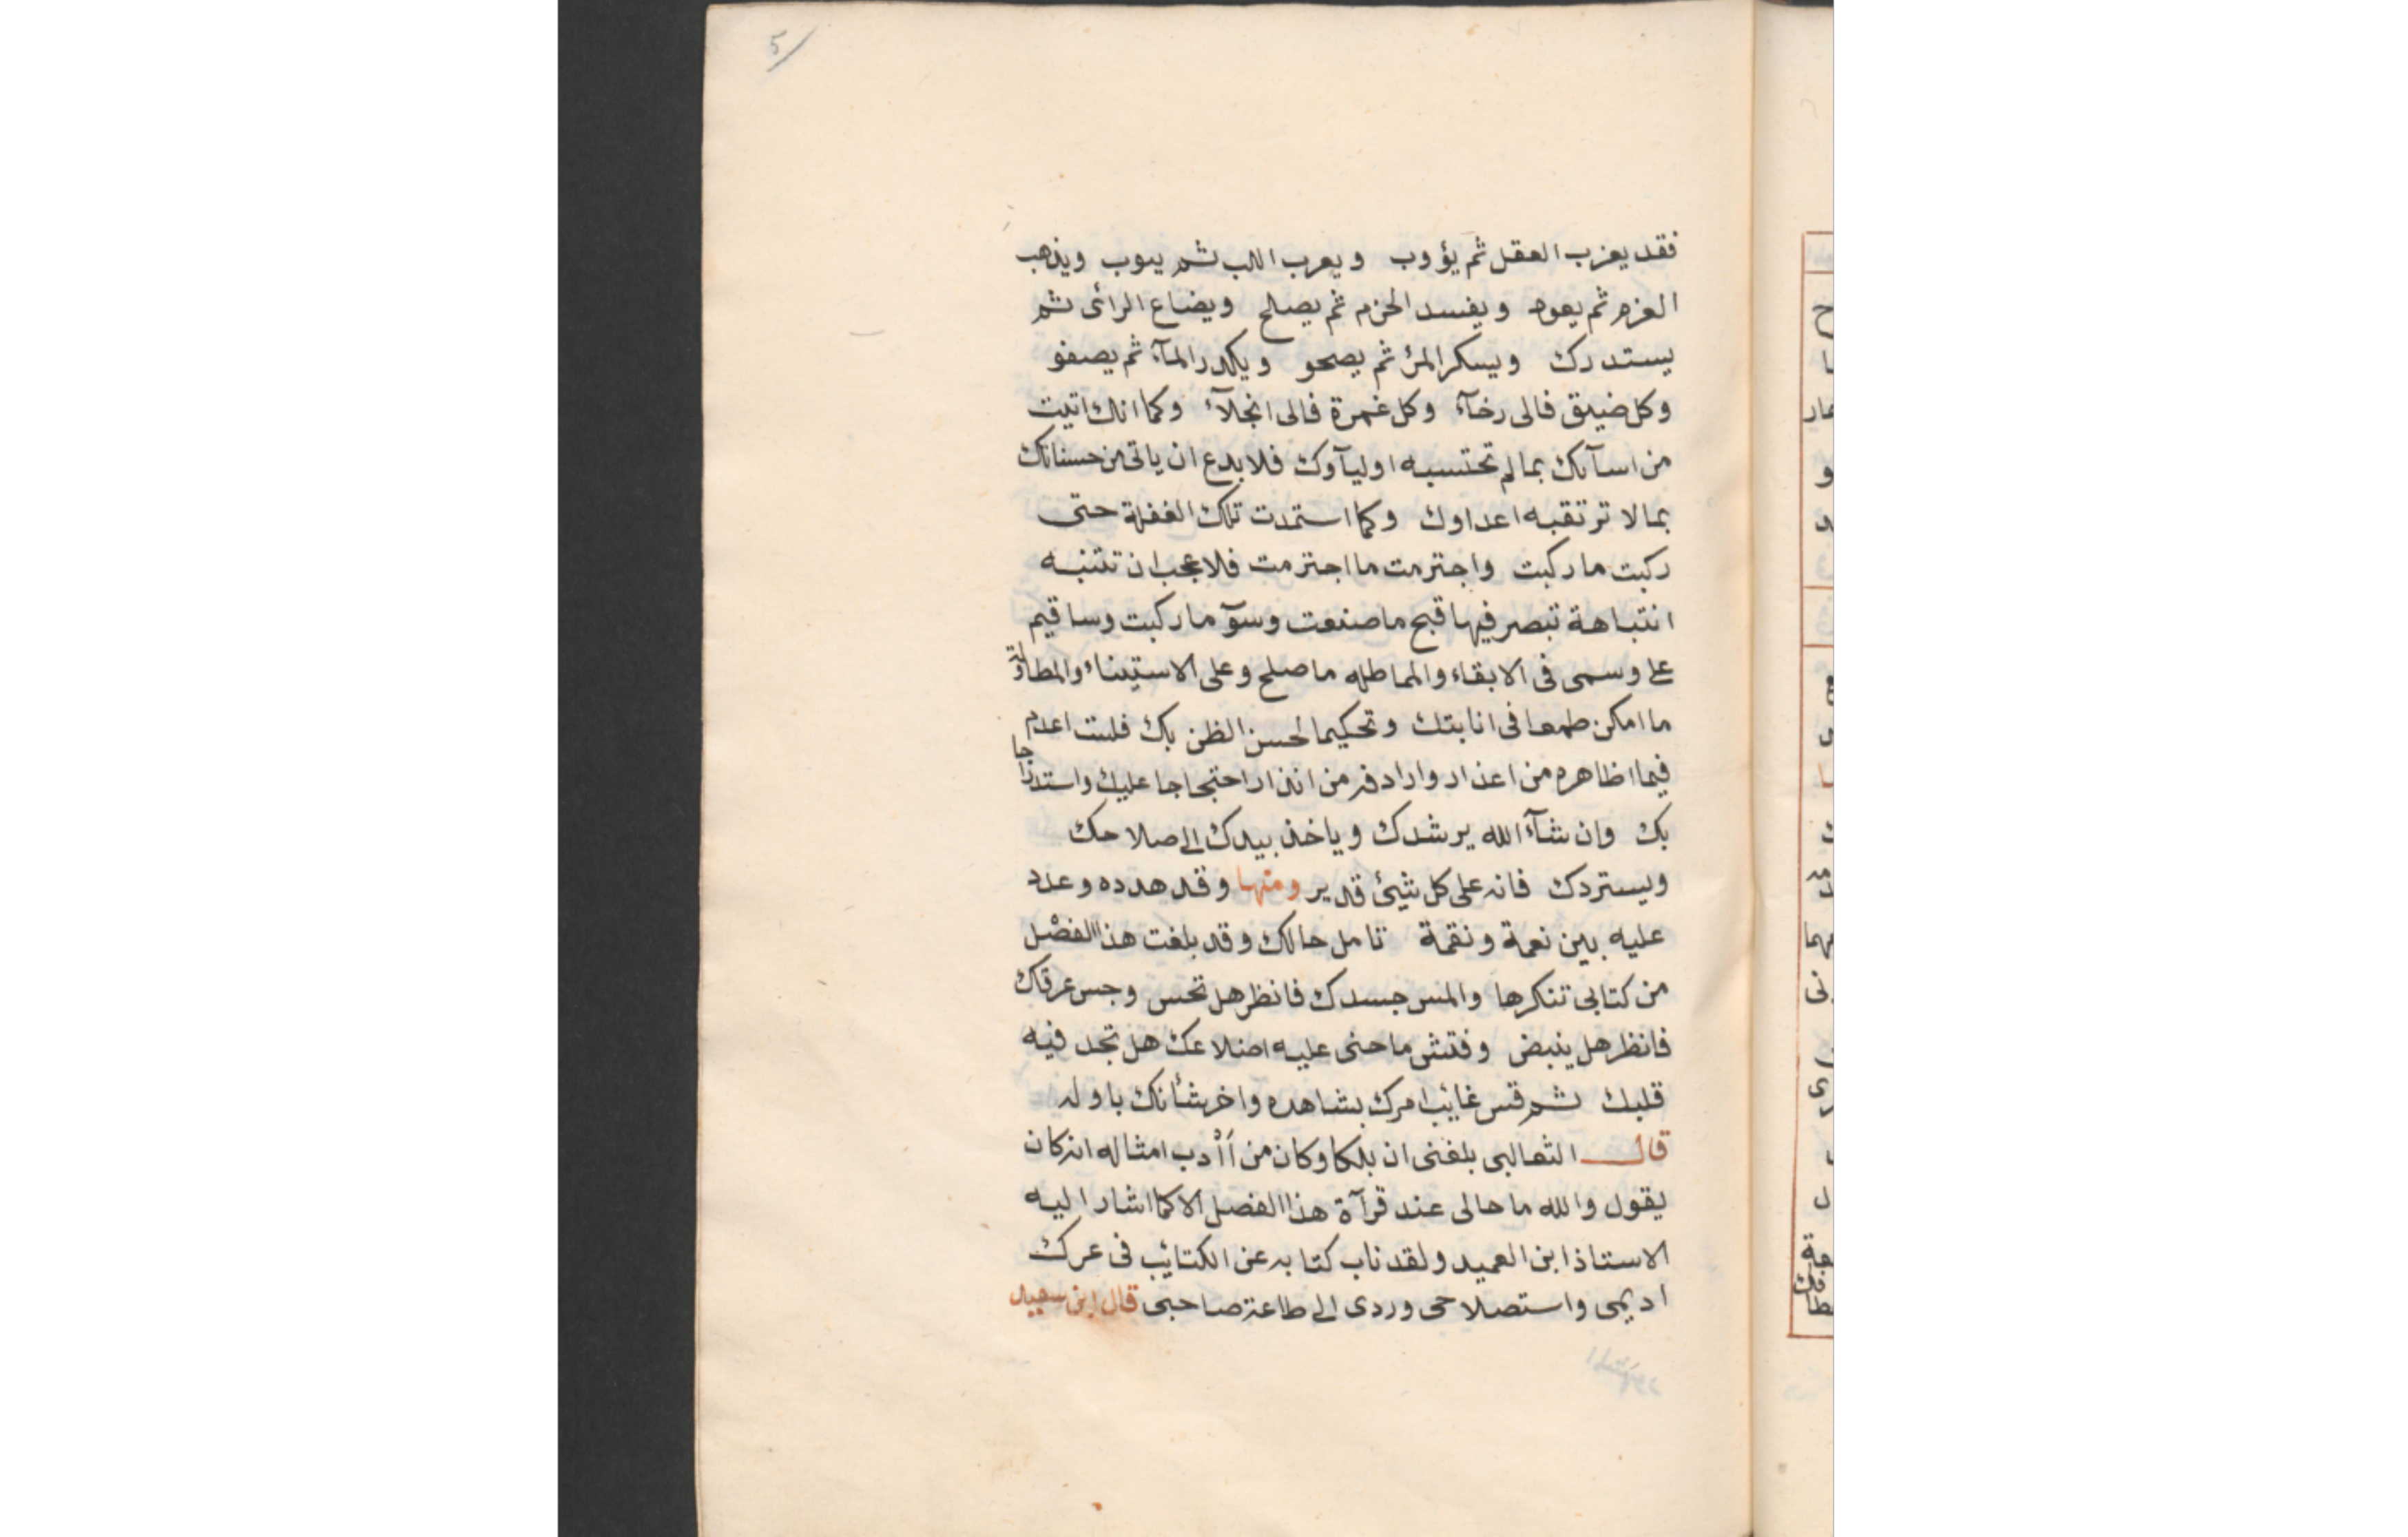 5
فقد يعزب العقل ثم يؤوب ويعرب اللب ثم يبوب ويذهب
العزم ثم يعود ويفسد الحزم ثم يصلح ويضاع الرائى ثم
يستدرك ويسكر المرٔ ثم يصحو ويكدر المآء ثم يصفو
وكل ضيق فالى رخآء وكل غمرة فالى انجلآء وكما انك اتيت
من اسآتك بما لم تحتسبه اوليآوك فلا بدع ان ياتى من حسناتك
بما لا ترتقبه اعداوك وكما استمدت تلك الغفلة حتى
ركبت ما ركبت واجترمت ما اجترمت فلا عجب ان تتنبه
انتباهة تبصر فيها قبح ما صنعت وسوٓ ما ركبت وساقيم
على وسمى فى الابقاء والمماطله ما صلح وعلى الاستيناء والمطاولة
ما امكن طمعا فى انابتك وتحكيما لحسن الظن بك فلست اعدم
فيما اظاهره من اعذار وارادفه من انذار احتجاجا عليك واستدراجا
بك وان شآء الله يرشدك وياخذ بيدك الى صلاحك
ويستردك فانه على كل شيئ قدير ومنها وقد هدده وعدد
عليه بين نعمة ونقمة تامل حالك وقد بلغت هذا الفصْل
من كتابى تنكرها والمس جسدك فانظر هل تحس وجس عرقك
فانظر هل ينبض وفتش ما حنى عليه اضلاعك هل تجد فيه
قلبك ثم قس غائب امرك بشاهده واخر شأنك باوله
قال الثعالبى بلغنى ان بلكا وكان من أأدب امثاله انه كان
يقول والله ما حالى عند قرآة هذا الفصل الا كما اشار اليه
الاستاذ ابن العميد ولقد ناب كتابه عن الكتائب فى عرك
اديمى واستصلاحى وردى الى طاعة صاحبى قال ابن سعيد